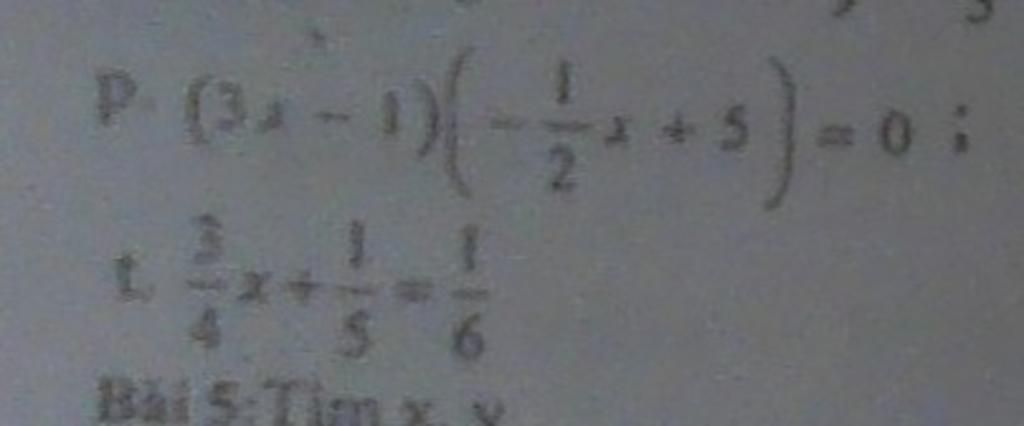 P. (3x - 1)(-\frac{1}{2}x + 5) = 0 ;
t. \frac{3}{4}x + \frac{1}{5} = \frac{1}{6}
Bài 5: Tìm x, y